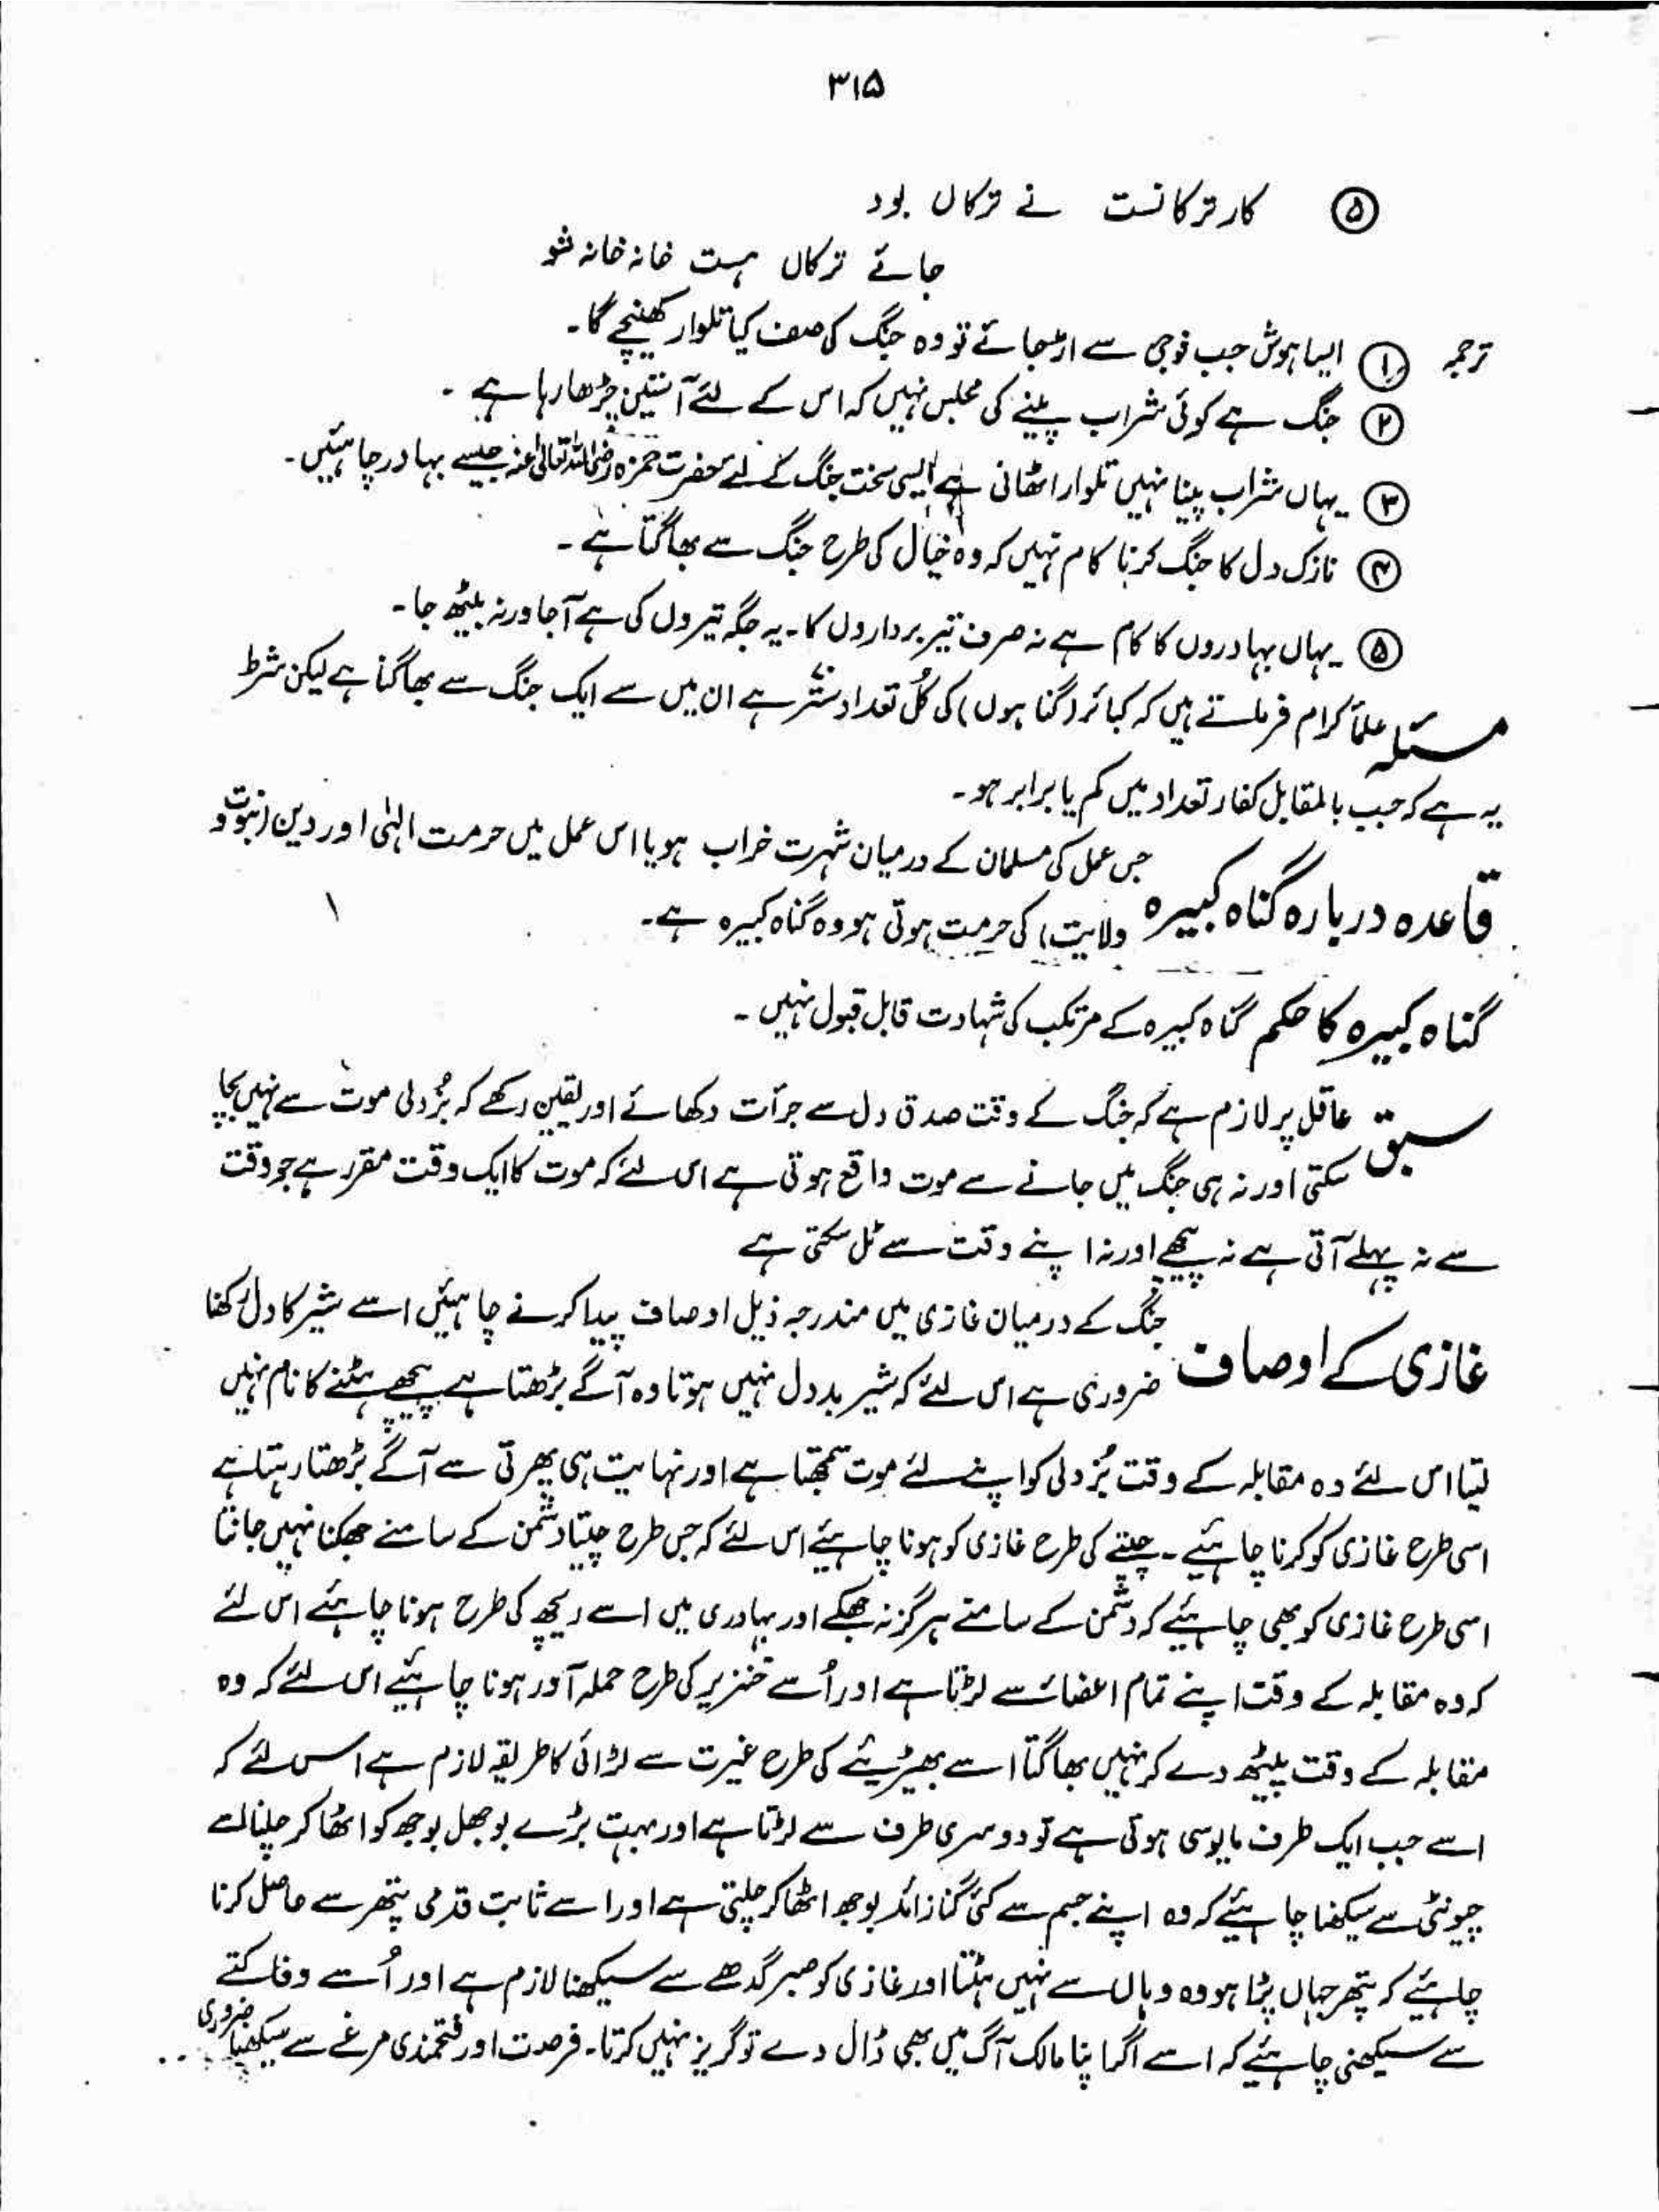 ۳۱۵
۵ کار ترکانست نے ترکاں بود
جائے ترکاں ہست خانہ خانہ شو
ترجمہ ۱ ایسا ہوش جب فوجی سے اڑ جائے تو وہ جنگ کی صف کیا تلوار کھینچے گا۔
۲ جنگ ہے کوئی شراب پینے کی مجلس نہیں کہ اس کے لئے آستین چڑھا رہا ہے ۔
۳ یہاں شراب پینا نہیں تلوار اٹھانی ہے ایسی سخت جنگ کے لئے حضرت حمزہ رضی اللہ تعالیٰ عنہ جیسے بہادر چاہئیں۔
۴ نازک دل کا جنگ کرنا کام نہیں کہ وہ خیال کی طرح جنگ سے بھاگتا ہے ۔
۵ یہاں بہادروں کا کام ہے نہ صرف تیر برداروں کا۔ یہ جگہ تیروں کی ہے آجا ورنہ بیٹھ جا۔
مسئلہ علماء کرام فرماتے ہیں کہ کبائر (گناہوں) کی کُل تعداد ستّر ہے ان میں سے ایک جنگ سے بھاگنا ہے لیکن شرط
یہ ہے کہ جب بالمقابل کفار تعداد میں کم یا برابر ہو۔
قاعدہ دربارہ گناہ کبیرہ جس عمل کی مسلمان کے درمیان شہرت خراب ہو یا اس عمل میں حرمت الہٰی اور دین (نبوت و
ولایت) کی حرمت ہوتی ہو وہ گناہ کبیرہ ہے۔
گناہ کبیرہ کا حکم گناہ کبیرہ کے مرتکب کی شہادت قابل قبول نہیں ۔
سبق عاقل پر لازم ہے کہ جنگ کے وقت صدق دل سے جرأت دکھائے اور یقین رکھے کہ بُزدلی موت سے نہیں بچا
سکتی اور نہ ہی جنگ میں جانے سے موت واقع ہوتی ہے اس لئے کہ موت کا ایک وقت مقرر ہے جو وقت
سے نہ پہلے آتی ہے نہ پیچھے اور نہ اپنے وقت سے ٹل سکتی ہے
غازی کے اوصاف جنگ کے درمیان غازی میں مندرجہ ذیل اوصاف پیدا کرنے چاہئیں اسے شیر کا دل رکھنا
ضروری ہے اس لئے کہ شیر بددل نہیں ہوتا وہ آگے بڑھتا ہے پیچھے ہٹنے کا نام نہیں
لیتا اس لئے وہ مقابلہ کے وقت بُزدلی کو اپنے لئے موت سمجھتا ہے اور نہایت ہی پھرتی سے آگے بڑھتا رہتا ہے
اسی طرح غازی کو کرنا چاہئیے ۔ چیتے کی طرح غازی کو ہونا چاہئیے اس لئے کہ جس طرح چیتا دشمن کے سامنے جھکنا نہیں جانتا
اسی طرح غازی کو بھی چاہئیے کہ دشمن کے سامنے ہرگز نہ جھکے اور بہادری میں اسے ریچھ کی طرح ہونا چاہئے اس لئے
کہ وہ مقابلہ کے وقت اپنے تمام اعضائے سے لڑتا ہے اور اُسے خنزیر کی طرح حملہ آور ہونا چاہئیے اس لئے کہ وہ
مقابلہ کے وقت پیٹھ دے کر نہیں بھاگتا اسے بھیڑیئے کی طرح غیرت سے لڑائی کا طریقہ لازم ہے اس لئے کہ
اسے جب ایک طرف مایوسی ہوتی ہے تو دوسری طرف سے لڑتا ہے اور بہت بڑے بوجھل بوجھ کو اٹھا کر چلنا اسے
چونٹی سے سیکھنا چاہئیے کہ وہ اپنے جسم سے کئی گنا زائد بوجھ اٹھا کر چلتی ہے اور اسے ثابت قدمی پتھر سے حاصل کرنا
چاہئیے کہ پتھر جہاں پڑا ہو وہ وہاں سے نہیں ہٹتا اور غازی کو صبر گدھے سے سیکھنا لازم ہے اور اُسے وفا کتے
سے سیکھنی چاہئیے کہ اسے اگر اپنا مالک آگ میں بھی ڈال دے تو گریز نہیں کرتا۔ فرصت اور فتحمندی مرغے سے سیکھنا ضروری